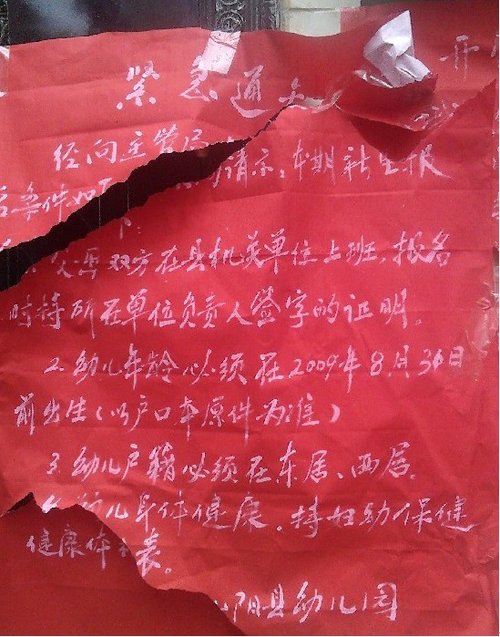 紧急通
开
经向主管局 请示：本期新生报
名条件如下
父母双方在县机关单位上班，报名
时持所在单位负责人签字的证明。
2.幼儿年龄必须在2009年8月30日
前出生（以户口本原件为准）
3.幼儿户籍必须在东居、西居。
幼儿身体健康，持妇幼保健
健康体 表。
阳县幼儿园